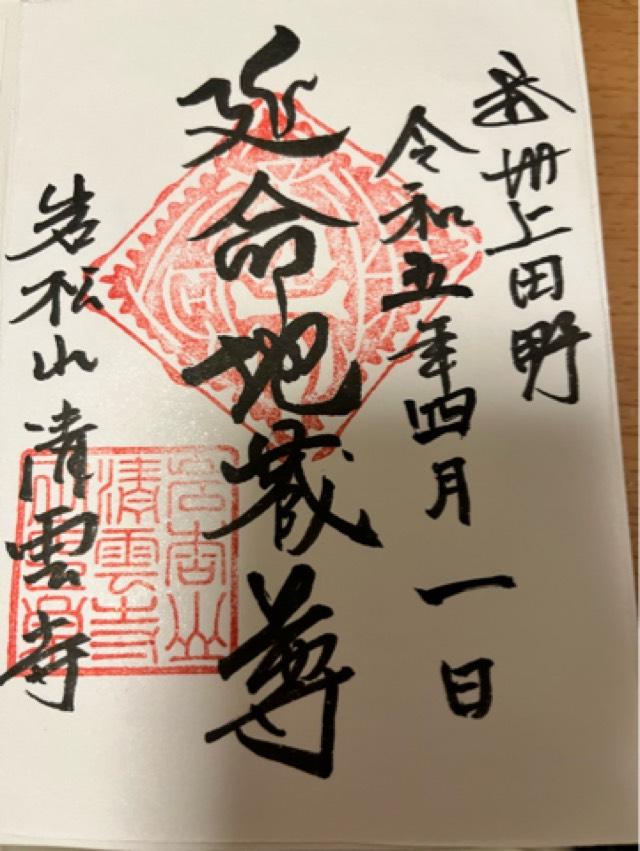 武州上田野
令和五年四月一日
延命地蔵尊
岩松山清雲寺
清雲寺